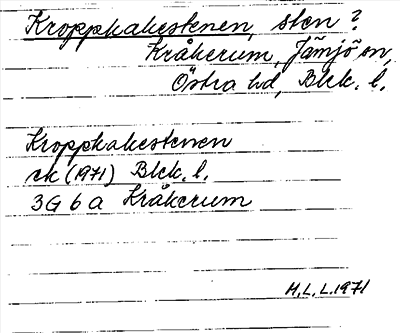 Kroppkakestenen, sten?
Kråkerum, Jämjö sn,
Östra hd, Blek. l.
Kroppkakestenen
ek (1971) Blek. l.
3G 6 a Kråkerum
M.L.L. 1971